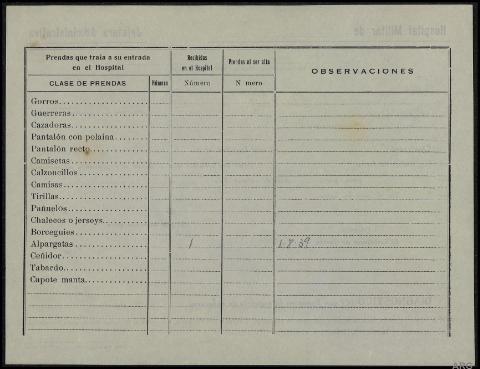 Hospital Militar de
Jefatura Administrativa
Prendas que traía a su entrada en el Hospital
Recibidas en el Hospital
Prendas al ser alta
OBSERVACIONES
CLASE DE PRENDAS
Número
Número
N mero
Gorros
Guerreras
Cazadoras
Pantalón con polaina
Pantalón recto
Camisetas
Calzoncillos
Camisas
Tirillas
Pañuelos
Chalecos o jerseys
Borceguíes
Alpargatas 1 1 7 39
Ceñidor
Tabardo
Capote manta
ARG